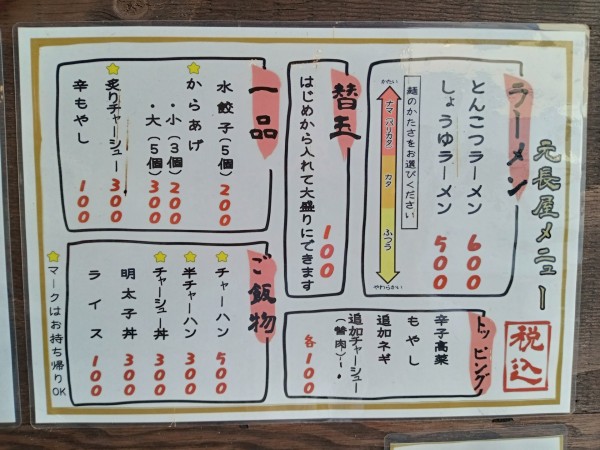 元長屋メニュー
税込
ラーメン
とんこつラーメン 600
しょうゆラーメン 500
麺のかたさをお選びください
かたい
ナマ(バリカタ)
カタ
ふつう
やわらかい
トッピング
辛子高菜
もやし
追加ネギ
追加チャーシュー
各100
替玉 100
はじめから入れて大盛りにできます
一品
水餃子(5個) 200
★からあげ
・小(3個) 200
・大(5個) 300
★炙りチャーシュー 300
辛もやし 100
ご飯物
★チャーハン 500
★半チャーハン 300
★チャーシュー丼 300
明太子丼 300
ライス 100
★マークはお持ち帰りOK